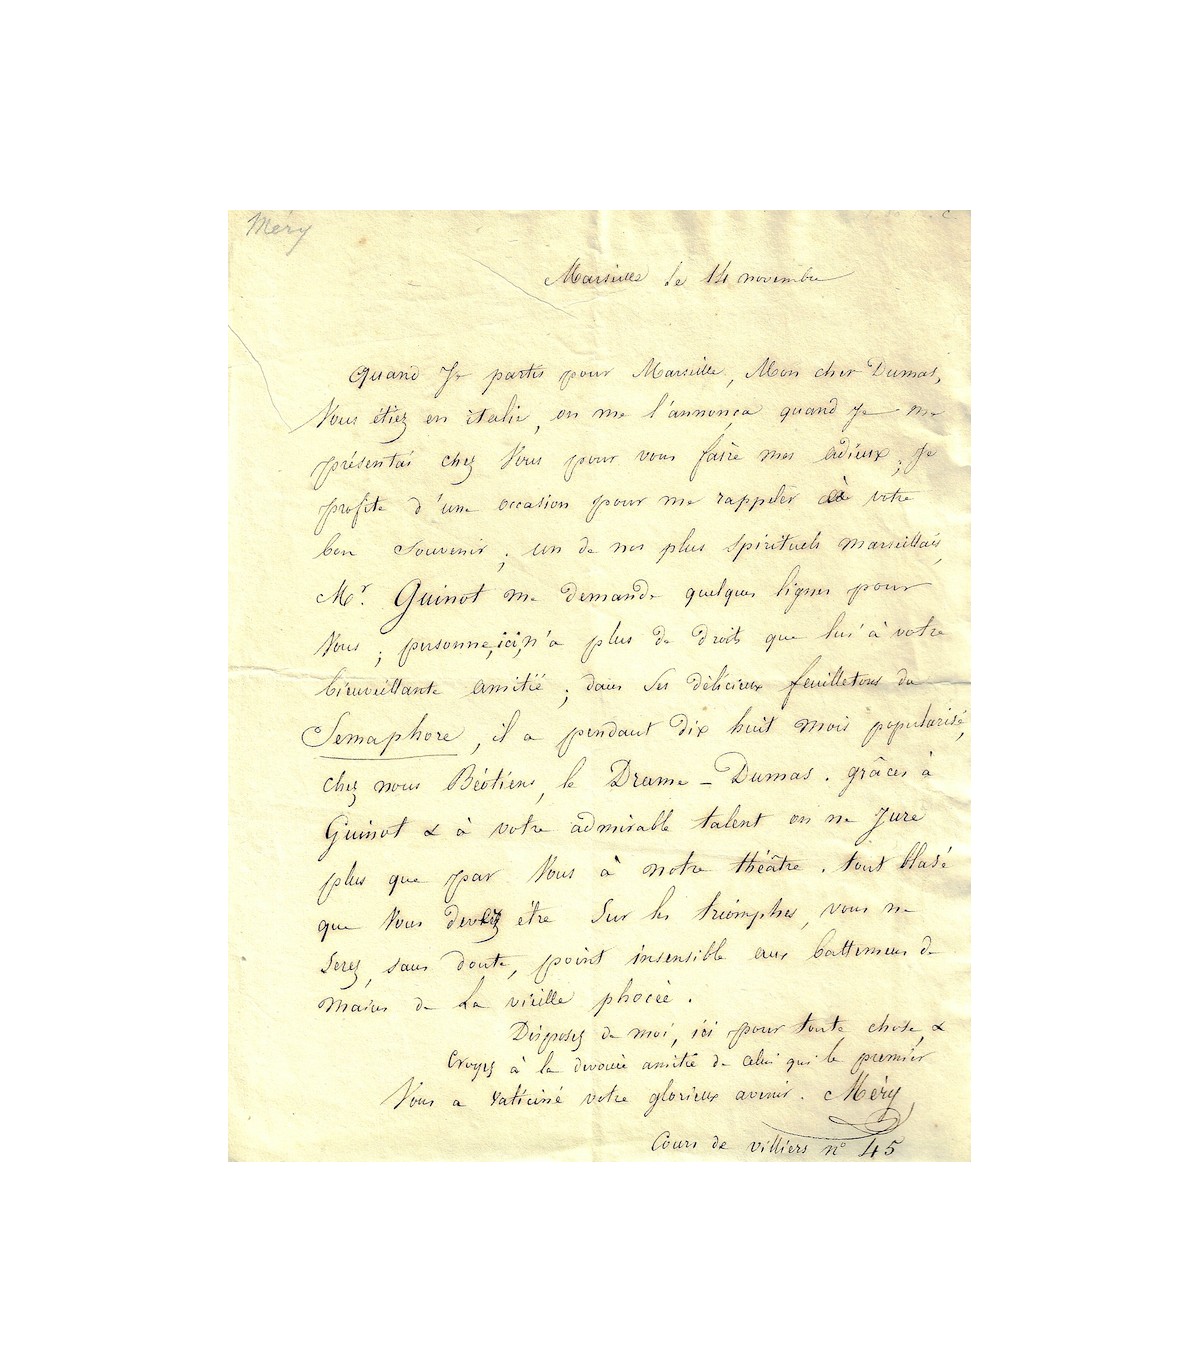 Méry
Marseille le 14 novembre
Quand Je partis pour Marseille, Mon cher Dumas,
Vous étiez en italie, on me l'annonça quand je me
présentai chez Vous pour vous faire mes adieux; Je
profite d'une occasion pour me rappeler à votre
bon Souvenir; un de nos plus spirituels marseillais,
Mr. Guinot me demande quelques lignes pour
Vous; personne, ici, n'a plus de droits que lui à votre
bienveillante amitié; dans ses délicieux feuilletons du
Semaphore, il a pendant dix huit mois popularisé,
chez nous Béotiens, le Drame-Dumas. grâces à
Guinot & à votre admirable talent on ne Jure
plus que par Vous à notre théâtre. tout blasé
que Vous devez être Sur les triomphes, vous ne
Serez, sans doute, point insensible aux battemens de
mains de La vieille phocée.
Disposez de moi, ici pour toute chose, &
Croyez à la dévouée amitié de celui qui le premier
Vous a vaticiné votre glorieux avenir. Méry
Cours de villiers n° 45